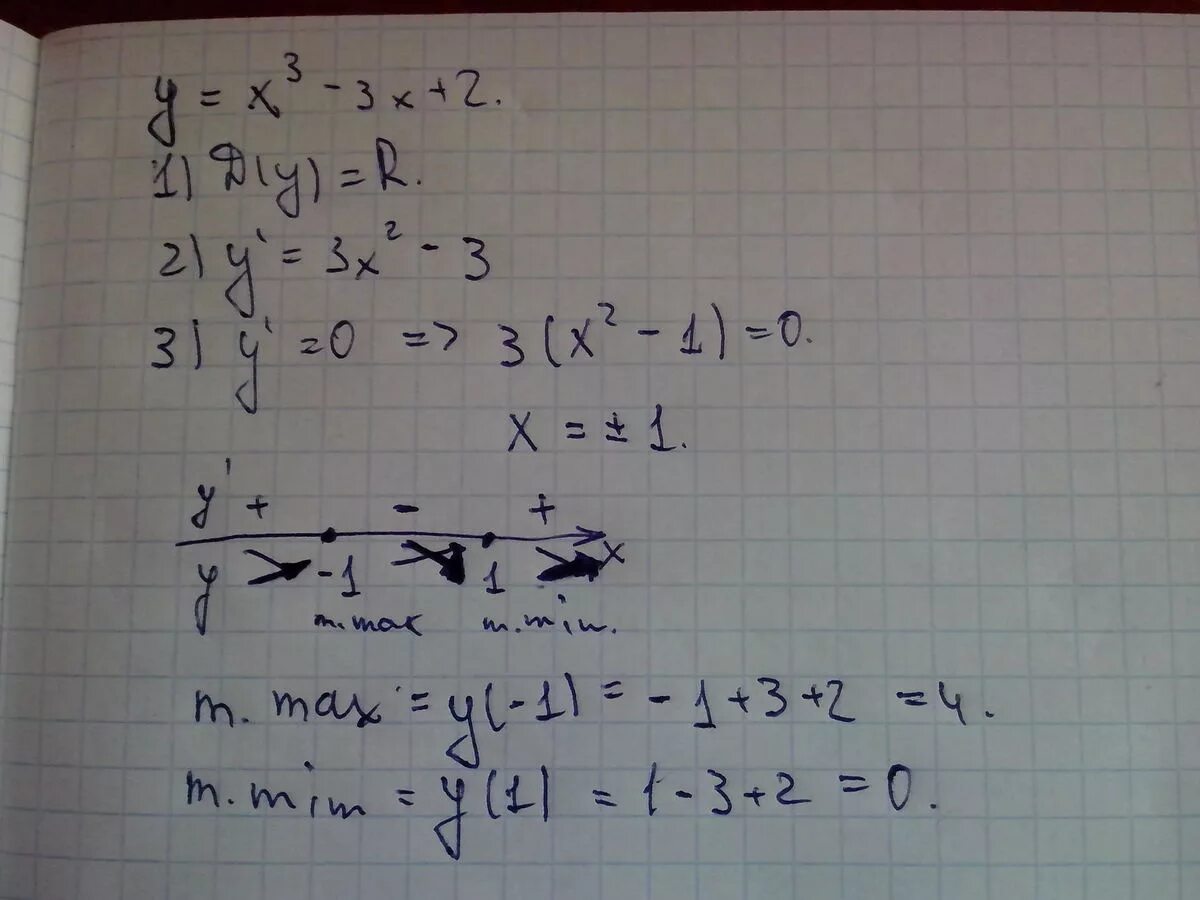 y = x³ - 3x + 2.
1) D(y) = R.
2) y' = 3x² - 3
3) y' = 0 => 3(x² - 1) = 0.
x = ± 1.
y' + - +
y -1 1 x
т.max т.min.
т. max = y(-1) = -1+3+2 = 4.
т.min = y(1) = 1-3+2 = 0.